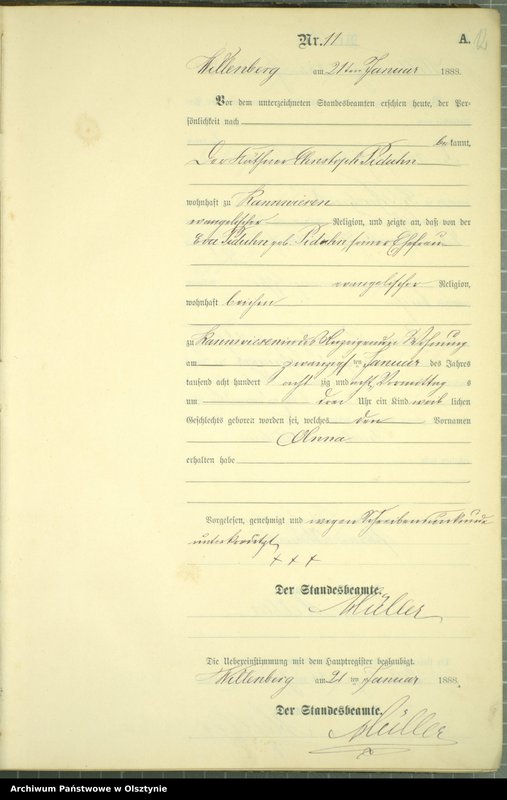 Nr. 11
A.
12
Willenberg am 21ten Januar 1888.
Vor dem unterzeichneten Standesbeamten erschien heute, der Per-
sönlichkeit nach
bekannt,
Der Käthner Christoph Piduhn
wohnhaft zu
evangelischer Religion, und zeigte an, daß von der
Eva Piduhn geb. Piduhn, seiner Ehefrau
evangelischer Religion,
wohnhaft bei ihm
zu in des Anzeigenden Wohnung
am zwanzigsten Januar des Jahres
tausend acht hundert acht zig und acht, Vormittag s
um drei Uhr ein Kind weib lichen
Geschlechts geboren worden sei, welches den Vornamen
Anna
erhalten habe
Vorgelesen, genehmigt und wegen Schreibensunkunde
unterkreuzt
+ + +
Der Standesbeamte.
Müller
Die Uebereinstimmung mit dem Hauptregister beglaubigt.
Willenberg am 21 ten Januar 1888.
Der Standesbeamte.
Müller
Archiwum Państwowe w Olsztynie